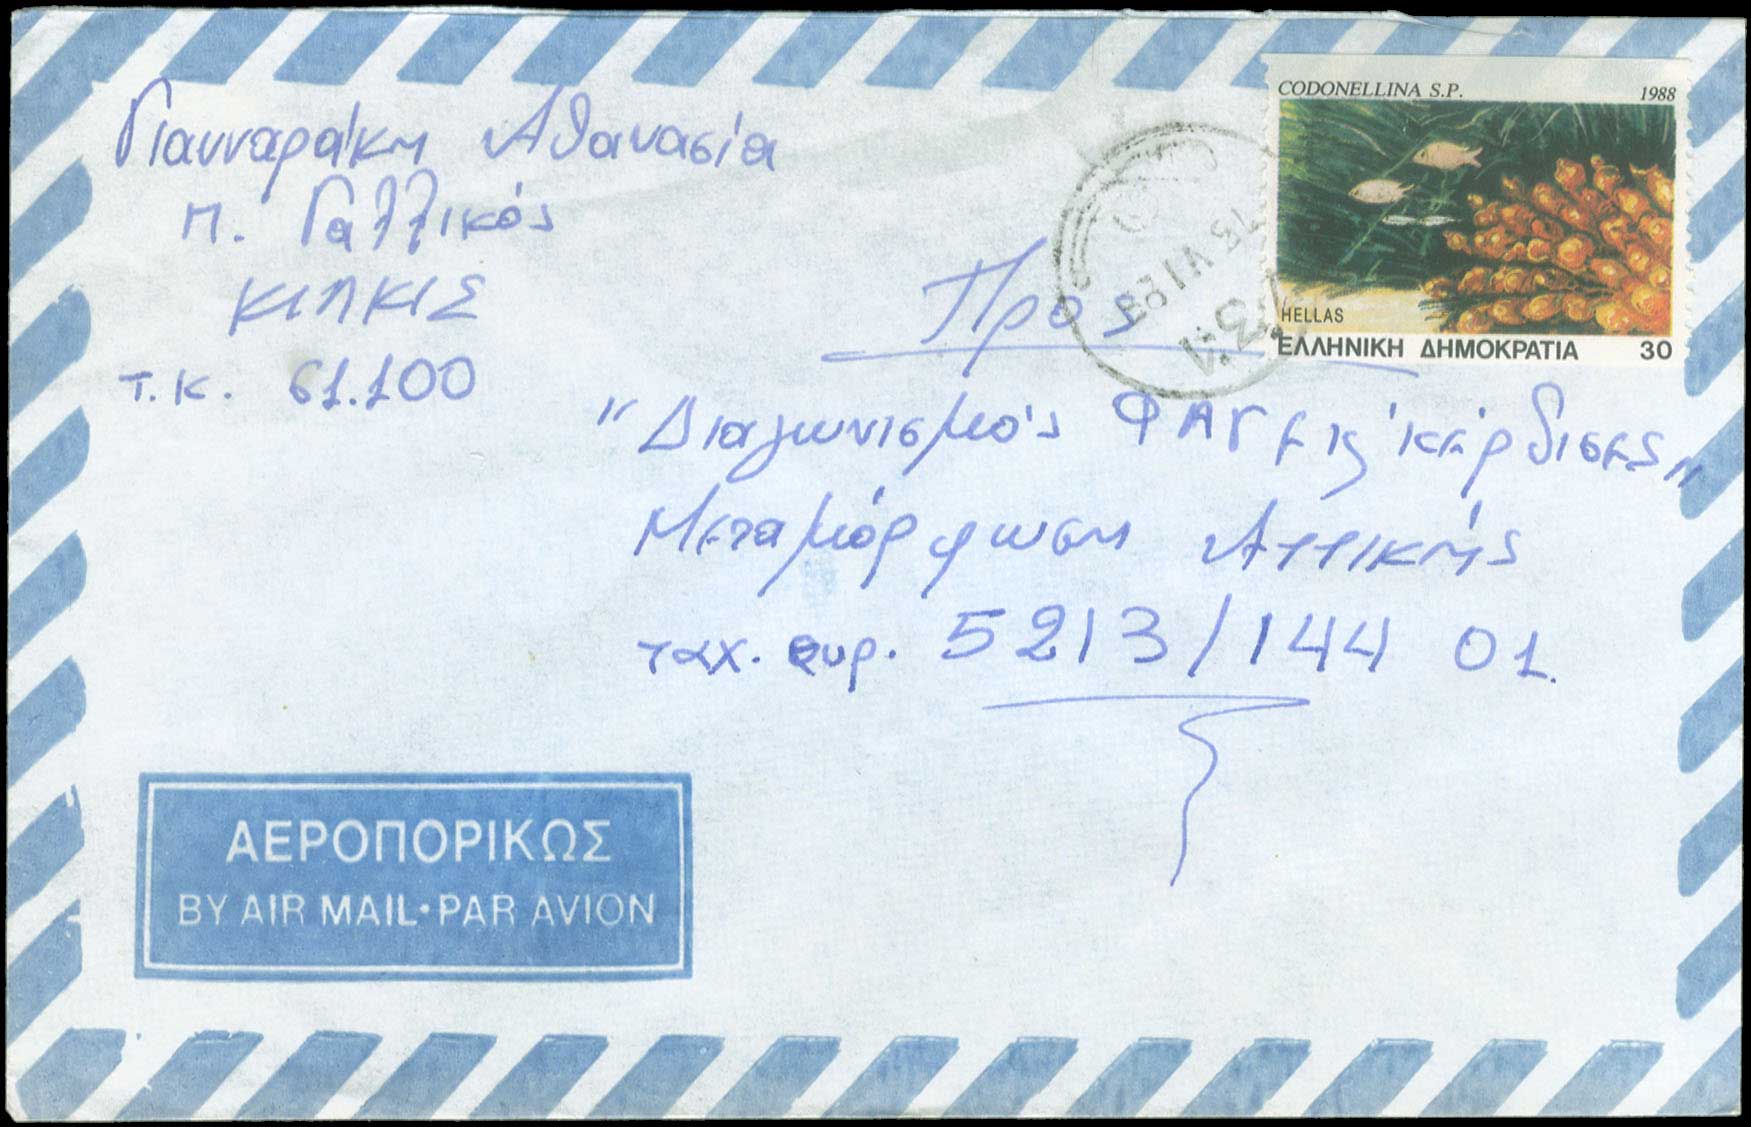 Γιανναράκη Αθανασία
Π. Γαλλικός
ΚΙΛΚΙΣ
Τ.Κ. 61.100
CODONELLINA S.P. 1988
HELLAS
ΕΛΛΗΝΙΚΗ ΔΗΜΟΚΡΑΤΙΑ 30
Προς
"Διαγωνισμός ΦΑΓε κέρδισε"
Μεταμόρφωση Αττικής
ταχ. θυρ. 5213/144 01.
ΑΕΡΟΠΟΡΙΚΩΣ
BY AIR MAIL·PAR AVION